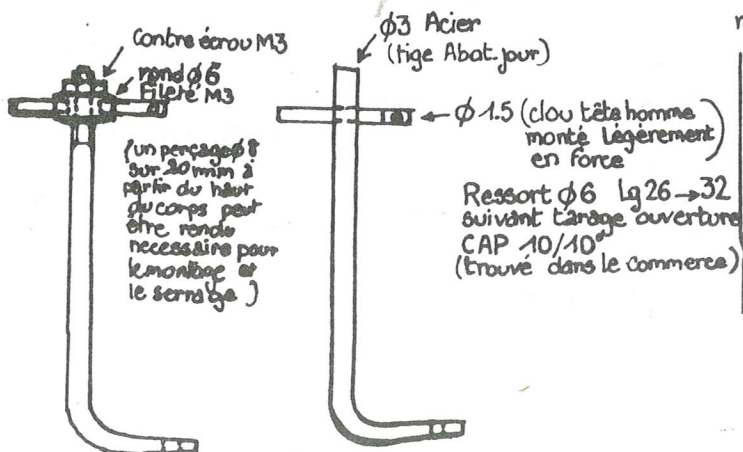 contre écrou M3
rond ϕ6
Fileté M3
(un perçage ϕ8
sur 20mm à
partir du haut
du corps peut
être rendu
necessaire pour
le montage et
le serrage)
ϕ3 Acier
(tige Abat.jour)
ϕ 1.5 (clou tête homme
monté légèrement
en force)
Ressort ϕ6 Lg 26→32
suivant tarage ouverture
CAP 10/10°
(trouvé dans le commerce)